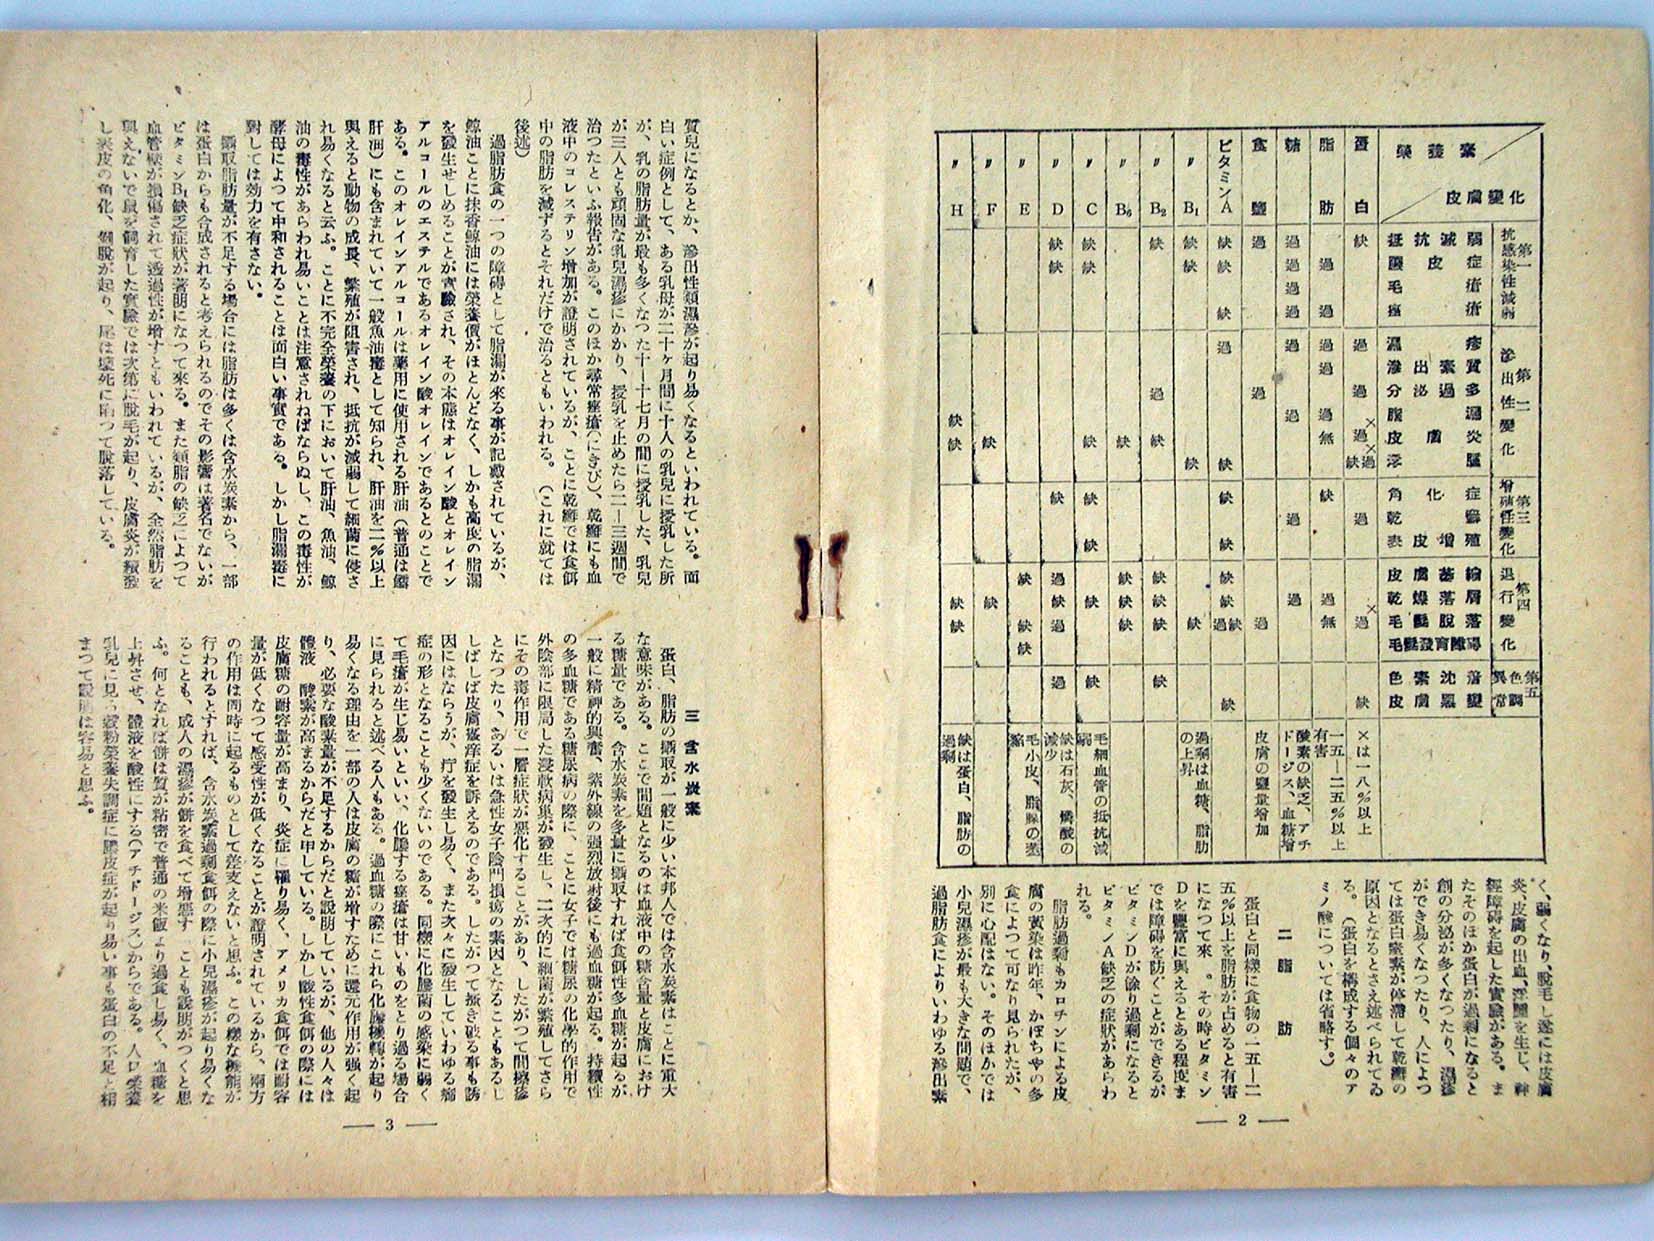 榮養素
皮膚變化
第一 抗感染性減弱
抵抗減弱
酸皮症
毛瘡
痤瘡
第二 滲出性變化
濕疹
滲出素質
分泌過多
脂漏
皮膚炎
浮腫
第三 增殖性變化
角化症
乾癬
表皮增殖
第四 退行變化
皮膚萎縮
乾燥落屑
毛髮脫落
毛髮發育障碍
第五 色調異常
色素沈着
皮膚黑變
蛋白 缺 過 過 ×過 ×缺過 過 ×過 缺 ×は一八%以上
脂肪 過 過 過 過 過 無 缺 過 無 一五―二五%以上有害
糖 過 過 過 過 過 過 過 過 酸素の缺乏、アチドージス、血糖增
食鹽 過 過 過 皮膚の鹽量增加
ビタミンA 缺 缺 缺 過 缺 缺 缺 缺 缺 過缺 缺
〃 B₁ 缺 缺 缺 缺 過剩は血糖、脂肪の上昇
〃 B₂ 缺 過 缺 缺 缺 缺 缺
〃 B₆ 缺 缺 缺 缺
〃 C 缺 缺 缺 缺 缺 缺 缺 毛細血管の抵抗減弱
〃 D 缺 缺 缺 過 缺 過 過 缺は石灰、燐酸の減少
〃 E 缺 缺 缺 毛小皮、脂腺の萎縮
〃 F 缺 缺
〃 H 缺 缺 缺 缺 缺は蛋白、脂肪の過剩
く、弱くなり、脫毛し遂には皮膚
炎、皮膚の出血、浮腫を生じ、神
經障碍を起した實驗がある。ま
たそのほか蛋白が過剩になると
創の分泌が多くなつたり、濕疹
ができ易くなつたり、人によつ
ては蛋白窒素が体滯して乾癬の
原因となるとさえ述べられてゐ
る。（蛋白を構成する個々のア
ミノ酸については省略す。）
二 脂肪
蛋白と同樣に食物の一五―二
五%以上を脂肪が占めると有害
になつて來 。その時ビタミン
Dを豐富に與えるとある程度ま
では障碍を防ぐことができるが
ビタミンDが餘り過剩になると
ビタミンA缺乏の症狀があらわ
れる。
脂肪過剩もカロチンによる皮
膚の黃染は昨年、かぼちやの多
食によつて可なり見られたが、
別に心配はない。そのほかでは
小兒濕疹が最も大きな問題で、
過脂肪食によりいわゆる滲出素
― 2 ―
質兒になるとか、滲出性類濕疹が起り易くなるといわれている。面
白い症例として、ある乳母が二十ヶ月間に十人の乳兒に授乳した所
が、乳の脂肪量が最も多くなつた十―十七月の間に授乳した、乳兒
が三人とも頑固な乳兒濕疹にかかり、授乳を止めたら二―三週間で
治つたといふ報告がある。このほか尋常痤瘡（にきび）、乾癬にも血
液中のコレステリン增加が證明されているが、ことに乾癬では食餌
中の脂肪を減ずるとそれだけで治るともいわれる。（これに就ては
後述）
過脂肪食の一つの障碍として脂漏が來る事が記載されているが、
鯨油ことに抹香鯨油には榮養價がほとんどなく、しかも高度の脂漏
を發生せしめることが實驗され、その本態はオレイン酸とオレイン
アルコールのエステルであるオレイン酸オレインであるとのことで
ある。このオレインアルコールは藥用に使用される肝油（普通は鱈
肝油）にも含まれていて一般魚油毒として知られ、肝油を二%以上
與えると動物の成長、繁殖が阻害され、抵抗が減弱して細菌に侵さ
れ易くなると云ふ。ことに不完全榮養の下において肝油、魚油、鯨
油の毒性があらわれ易いことは注意されねばならぬし、この毒性が
酵母によつて中和されることは面白い事實である。しかし脂漏毒に
對しては効力を有さない。
攝取脂肪量が不足する場合には脂肪は多くは含水炭素から、一部
は蛋白からも合成されると考えられるのでその影響は著名でないが
ビタミンB₁缺乏症狀が著明になつて來る。また類脂の缺乏によつて
血管壁が損傷されて透過性が增すともいわれているが、全然脂肪を
與えないで鼠を飼育した實驗では次第に脫毛が起り、皮膚炎が頻發
し表皮の角化、 脫が起り、尾は壞死に陷つて脫落している。
三 含水炭素
蛋白、脂肪の攝取が一般に少い本邦人では含水炭素はことに重大
な意味がある。ここで問題となるのは血液中の糖含量と皮膚におけ
る糖量である。含水炭素を多量に攝取すれば食餌性多血糖が起るが
一般に精神的興奮、紫外線の强烈放射後にも過血糖が起る。持續性
の多血糖である糖尿病の際に、ことに女子では糖尿の化學的作用で
外陰部に限局した浸軟病巢が發生し、二次的に細菌が繁殖してさら
にその毒作用で一層症狀が惡化することがあり、したがつて間擦疹
となつたり、あるいは急性女子陰門損瘍の素因となることもあるし
しばしば皮膚瘙痒症を訴えるのである。したがつて搔き破る事も誘
因にはならうが、疔を發生し易く、また次々に發生していわゆる癤
症の形となることも少くないのである。同樣に化膿菌の感染に弱く
て毛瘡が生じ易いといい、化膿する痤瘡は甘いものをとり過る場合
に見られると述べる人もある。過血糖の際にこれら化膿機轉が起り
易くなる理由を一部の人は皮膚の糖が增すために還元作用が强く起
り、必要な酸素量が不足するからだと說明しているが、他の人々は
體液 酸素が高まるからだと申している。しかし酸性食餌の際には
皮膚糖の耐容量が高まり、炎症に罹り易く、アメリカ食餌では耐容
量が低くなつて感受性が低くなることが證明されているから、兩方
の作用は同時に起るものとして差支えないと思ふ。この樣な機能が
行われるとすれば、含水炭素過剩食餌の際に小兒濕疹が起り易くな
ることも、成人の濕疹が餅を食べて增惡す ことも說明がつくと思
ふ。何となれば餅は質が粘密で普通の米飯より過食し易く、血糖を
上昇させ、體液を酸性にする（アチドージス）からである。人口榮養
乳兒に見る穀粉榮養失調症に膿皮症が起り易い事も蛋白の不足と相
まつて說明は容易と思ふ。
― 3 ―